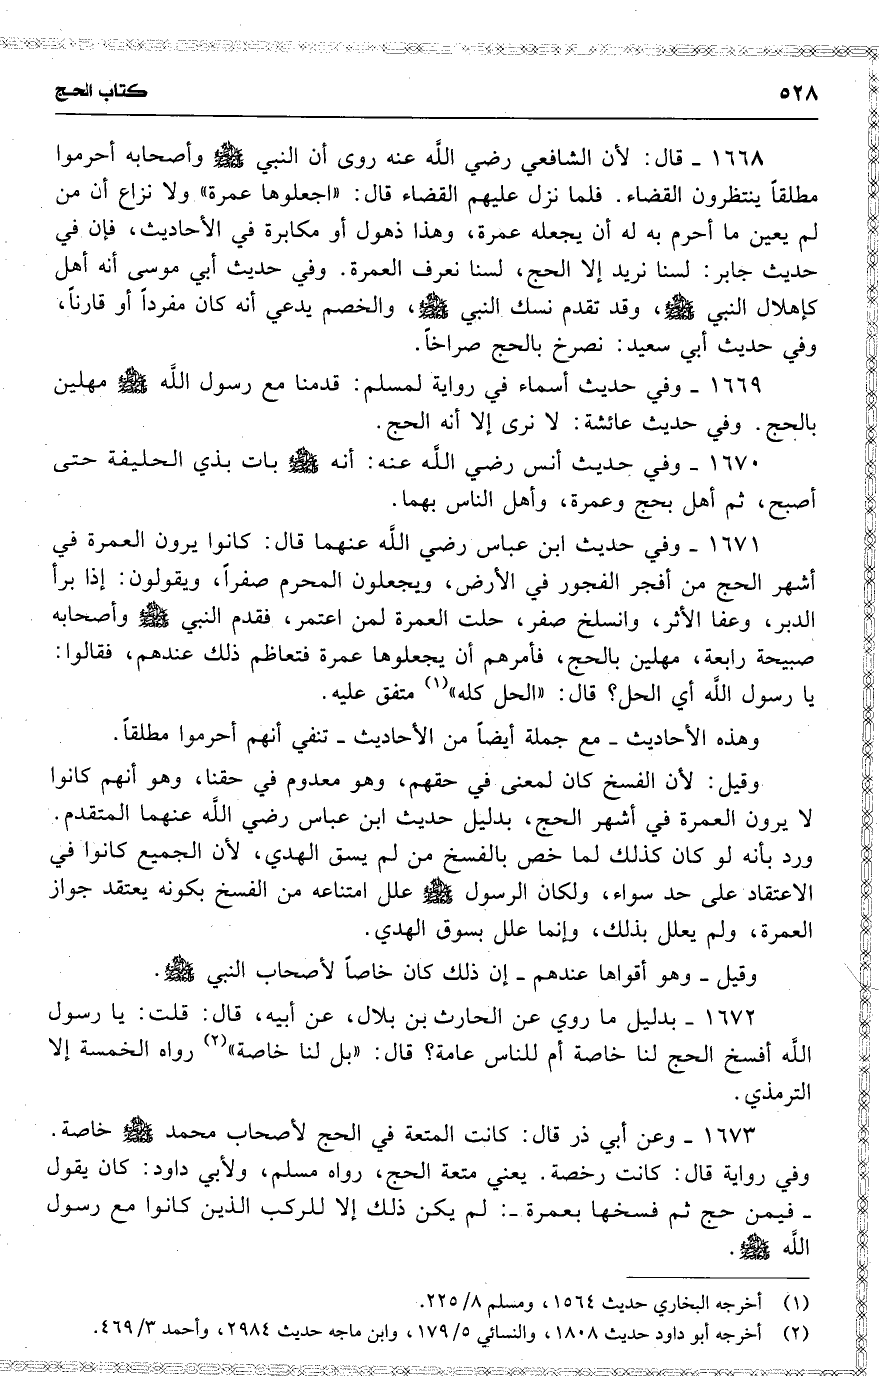 ٥٢٨ كتاب الحج
١٦٦٨ ـ قال: لأن الشافعي رضي اللَّه عنه روى أن النبي ﷺ وأصحابه أحرموا
مطلقاً ينتظرون القضاء. فلما نزل عليهم القضاء قال: «اجعلوها عمرة» ولا نزاع أن من
لم يعين ما أحرم به له أن يجعله عمرة، وهذا ذهول أو مكابرة في الأحاديث، فإن في
حديث جابر: لسنا نريد إلا الحج، لسنا نعرف العمرة. وفي حديث أبي موسى أنه أهل
كإهلال النبي ﷺ، وقد تقدم نسك النبي ﷺ، والخصم يدعي أنه كان مفرداً أو قارناً،
وفي حديث أبي سعيد: نصرخ بالحج صراخاً.
١٦٦٩ ـ وفي حديث أسماء في رواية لمسلم: قدمنا مع رسول اللَّه ﷺ مهلين
بالحج. وفي حديث عائشة: لا نرى إلا أنه الحج.
١٦٧٠ ـ وفي حديث أنس رضي اللَّه عنه: أنه ﷺ بات بذي الحليفة حتى
أصبح، ثم أهل بحج وعمرة، وأهل الناس بهما.
١٦٧١ ـ وفي حديث ابن عباس رضي اللَّه عنهما قال: كانوا يرون العمرة في
أشهر الحج من أفجر الفجور في الأرض، ويجعلون المحرم صفراً، ويقولون: إذا برأ
الدبر، وعفا الأثر، وانسلخ صفر، حلت العمرة لمن اعتمر، فقدم النبي ﷺ وأصحابه
صبيحة رابعة، مهلين بالحج، فأمرهم أن يجعلوها عمرة فتعاظم ذلك عندهم، فقالوا:
يا رسول اللَّه أي الحل؟ قال: «الحل كله»(١) متفق عليه.
وهذه الأحاديث ـ مع جملة أيضاً من الأحاديث ـ تنفي أنهم أحرموا مطلقاً.
وقيل: لأن الفسخ كان لمعنى في حقهم، وهو معدوم في حقنا، وهو أنهم كانوا
لا يرون العمرة في أشهر الحج، بدليل حديث ابن عباس رضي اللَّه عنهما المتقدم.
ورد بأنه لو كان كذلك لما خص بالفسخ من لم يسق الهدي، لأن الجميع كانوا في
الاعتقاد على حد سواء، ولكان الرسول ﷺ علل امتناعه من الفسخ بكونه يعتقد جواز
العمرة، ولم يعلل بذلك، وإنما علل بسوق الهدي.
وقيل ـ وهو أقواها عندهم ـ إن ذلك كان خاصاً لأصحاب النبي ﷺ.
١٦٧٢ ـ بدليل ما روي عن الحارث بن بلال، عن أبيه، قال: قلت: يا رسول
اللَّه أفسخ الحج لنا خاصة أم للناس عامة؟ قال: «بل لنا خاصة»(٢) رواه الخمسة إلا
الترمذي.
١٦٧٣ ـ وعن أبي ذر قال: كانت المتعة في الحج لأصحاب محمد ﷺ خاصة.
وفي رواية قال: كانت رخصة. يعني متعة الحج، رواه مسلم، ولأبي داود: كان يقول
ـ فيمن حج ثم فسخها بعمرة ـ: لم يكن ذلك إلا للركب الذين كانوا مع رسول
اللَّه ﷺ.
(١) أخرجه البخاري حديث ١٥٦٤، ومسلم ٨/ ٢٢٥.
(٢) أخرجه أبو داود حديث ١٨٠٨، والنسائي ٥/ ١٧٩، وابن ماجه حديث ٢٩٨٤، وأحمد ٣/ ٤٦٩.